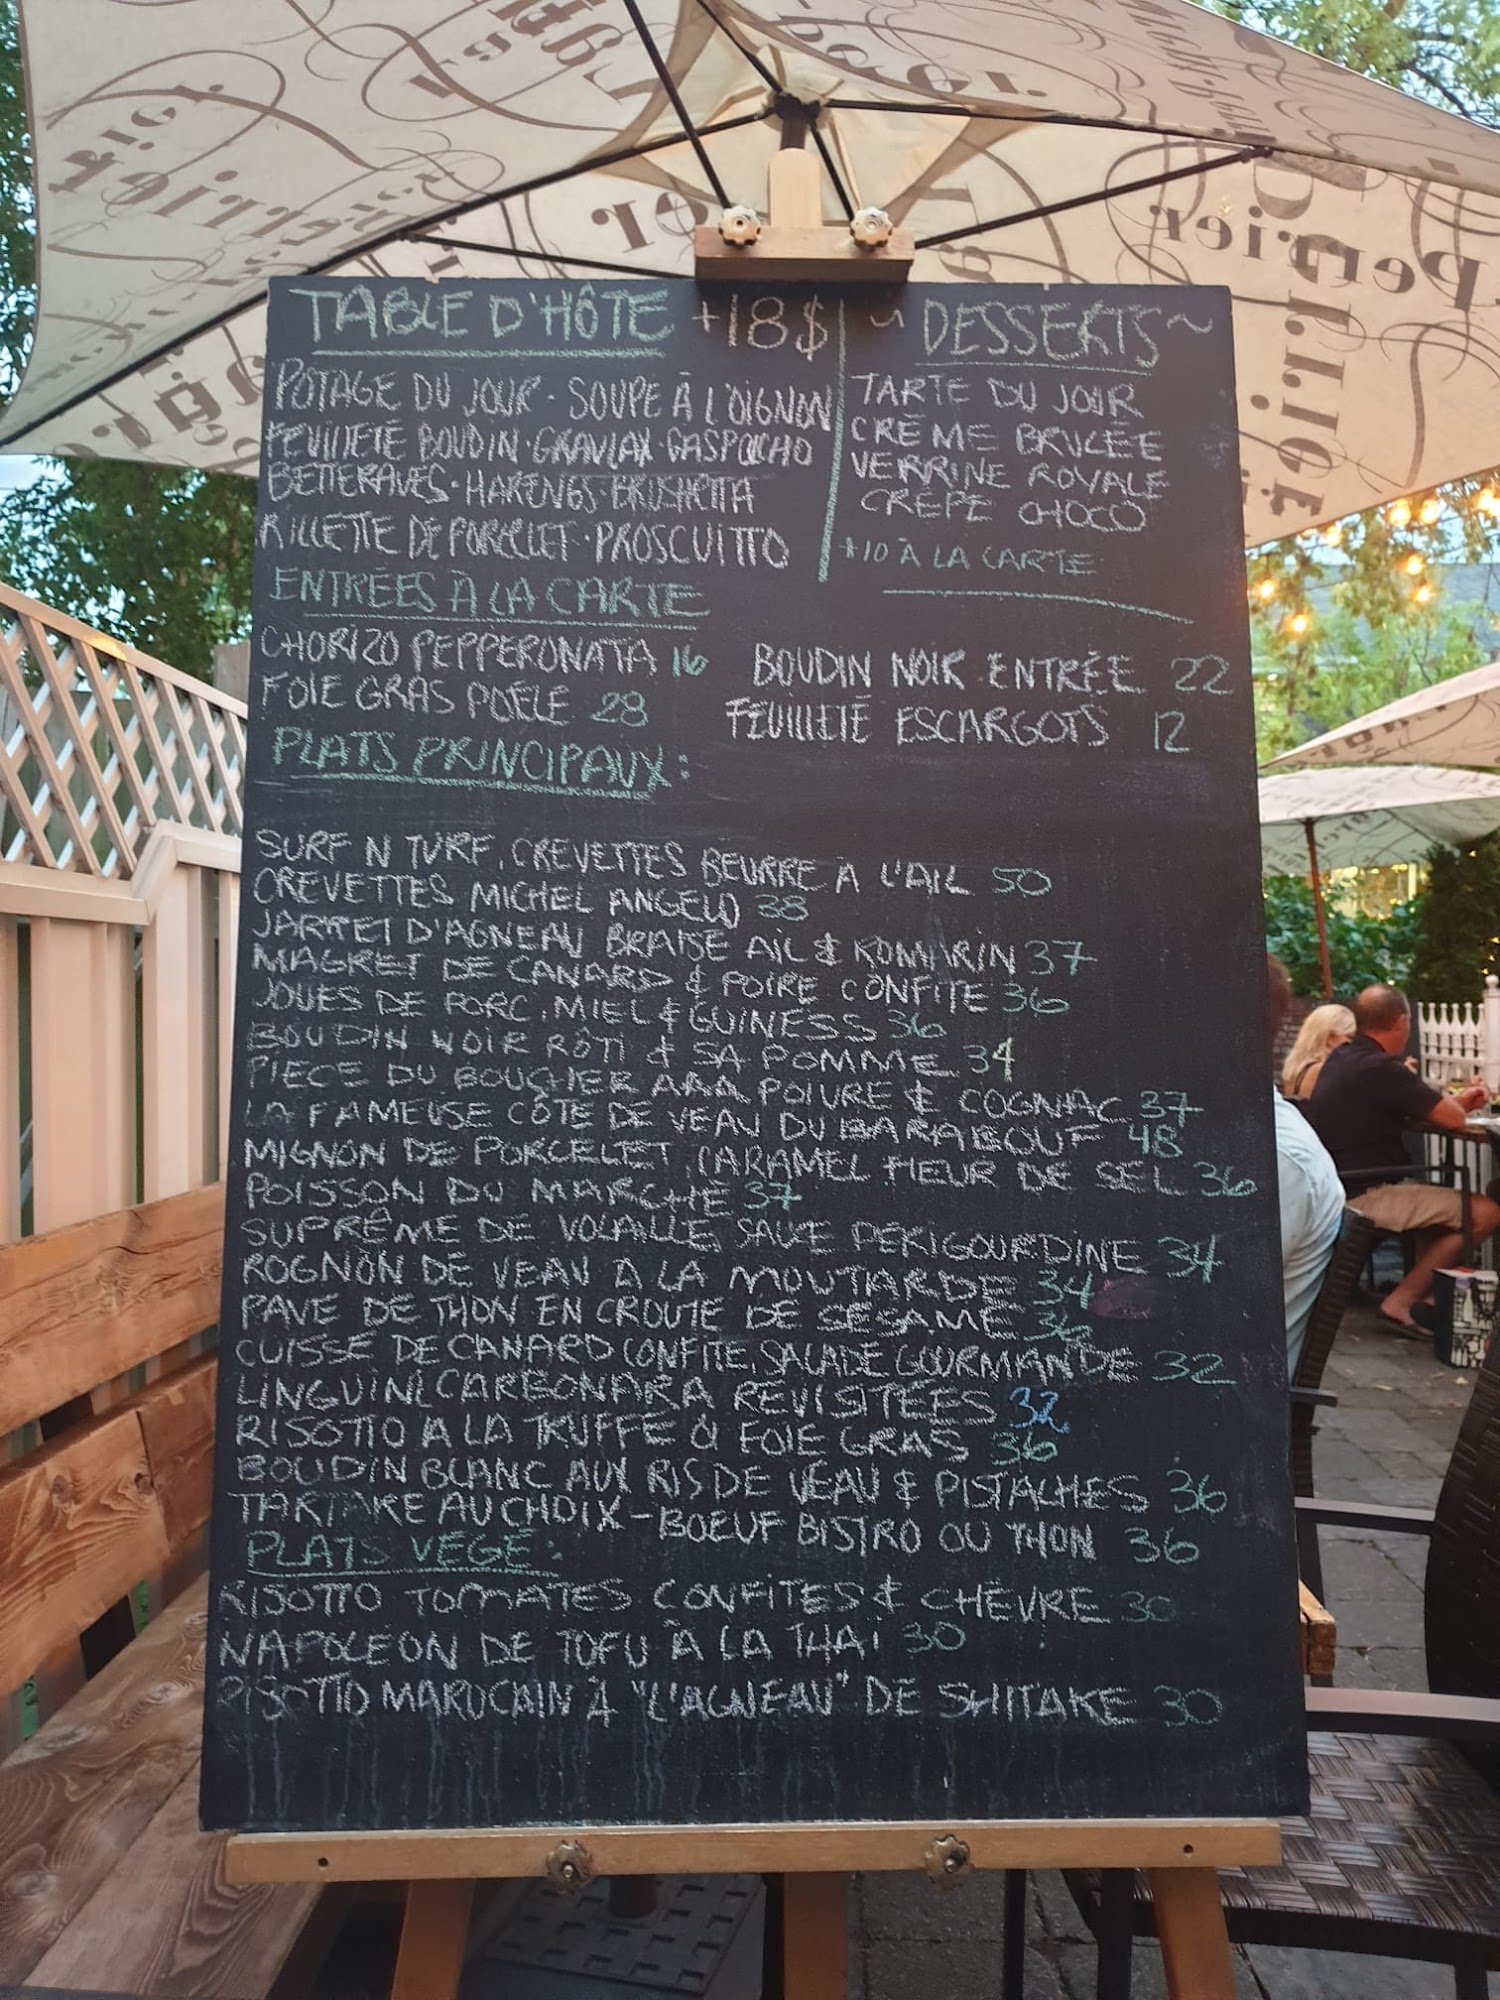 TABLE D'HÔTE +18$
POTAGE DU JOUR · SOUPE À L'OIGNON
FEUILLETÉ BOUDIN · GRAVLAX · GASPACHO
BETTERAVES · HARENGS · BRUSHETTA
RILLETTE DE PORCELET · PROSCUITTO
~ DESSERTS ~
TARTE DU JOUR
CRÈME BRULÉE
VERRINE ROYALE
CRÊPE CHOCO
+10 À LA CARTE
ENTRÉES À LA CARTE
CHORIZO PEPPERONATA 16
FOIE GRAS POÊLE 28
BOUDIN NOIR ENTRÉE 22
FEUILLETÉ ESCARGOTS 12
PLATS PRINCIPAUX:
SURF N TURF, CREVETTES BEURRE À L'AIL 50
CREVETTES MICHEL ANGELO 38
JARRET D'AGNEAU BRAISÉ AIL & ROMARIN 37
MAGRET DE CANARD & POIRE CONFITE 36
JOUES DE PORC, MIEL & GUINESS 36
BOUDIN NOIR RÔTI & SA POMME 34
PIÈCE DU BOUCHER AAA POIVRE & COGNAC 37
LA FAMEUSE CÔTE DE VEAU DU BARABOUF 48
MIGNON DE PORCELET, CARAMEL FLEUR DE SEL 36
POISSON DU MARCHÉ 37
SUPRÊME DE VOLAILLE, SAUCE PÉRIGOURDINE 34
ROGNON DE VEAU À LA MOUTARDE 34
PAVÉ DE THON EN CROUTE DE SÉSAME 36
CUISSE DE CANARD CONFITE, SALADE GOURMANDE 32
LINGUINI CARBONARA REVISITÉES 32
RISOTTO A LA TRUFFE & FOIE GRAS 36
BOUDIN BLANC AUX RIS DE VEAU & PISTACHES 36
TARTARE AU CHOIX - BOEUF BISTRO OU THON 36
PLATS VÉGÉ:
RISOTTO TOMATES CONFITES & CHÈVRE 30
NAPOLEON DE TOFU À LA THAÏ 30
RISOTTO MAROCAIN À "L'AGNEAU" DE SHITAKE 30
Perrier
Perrier
Perrier